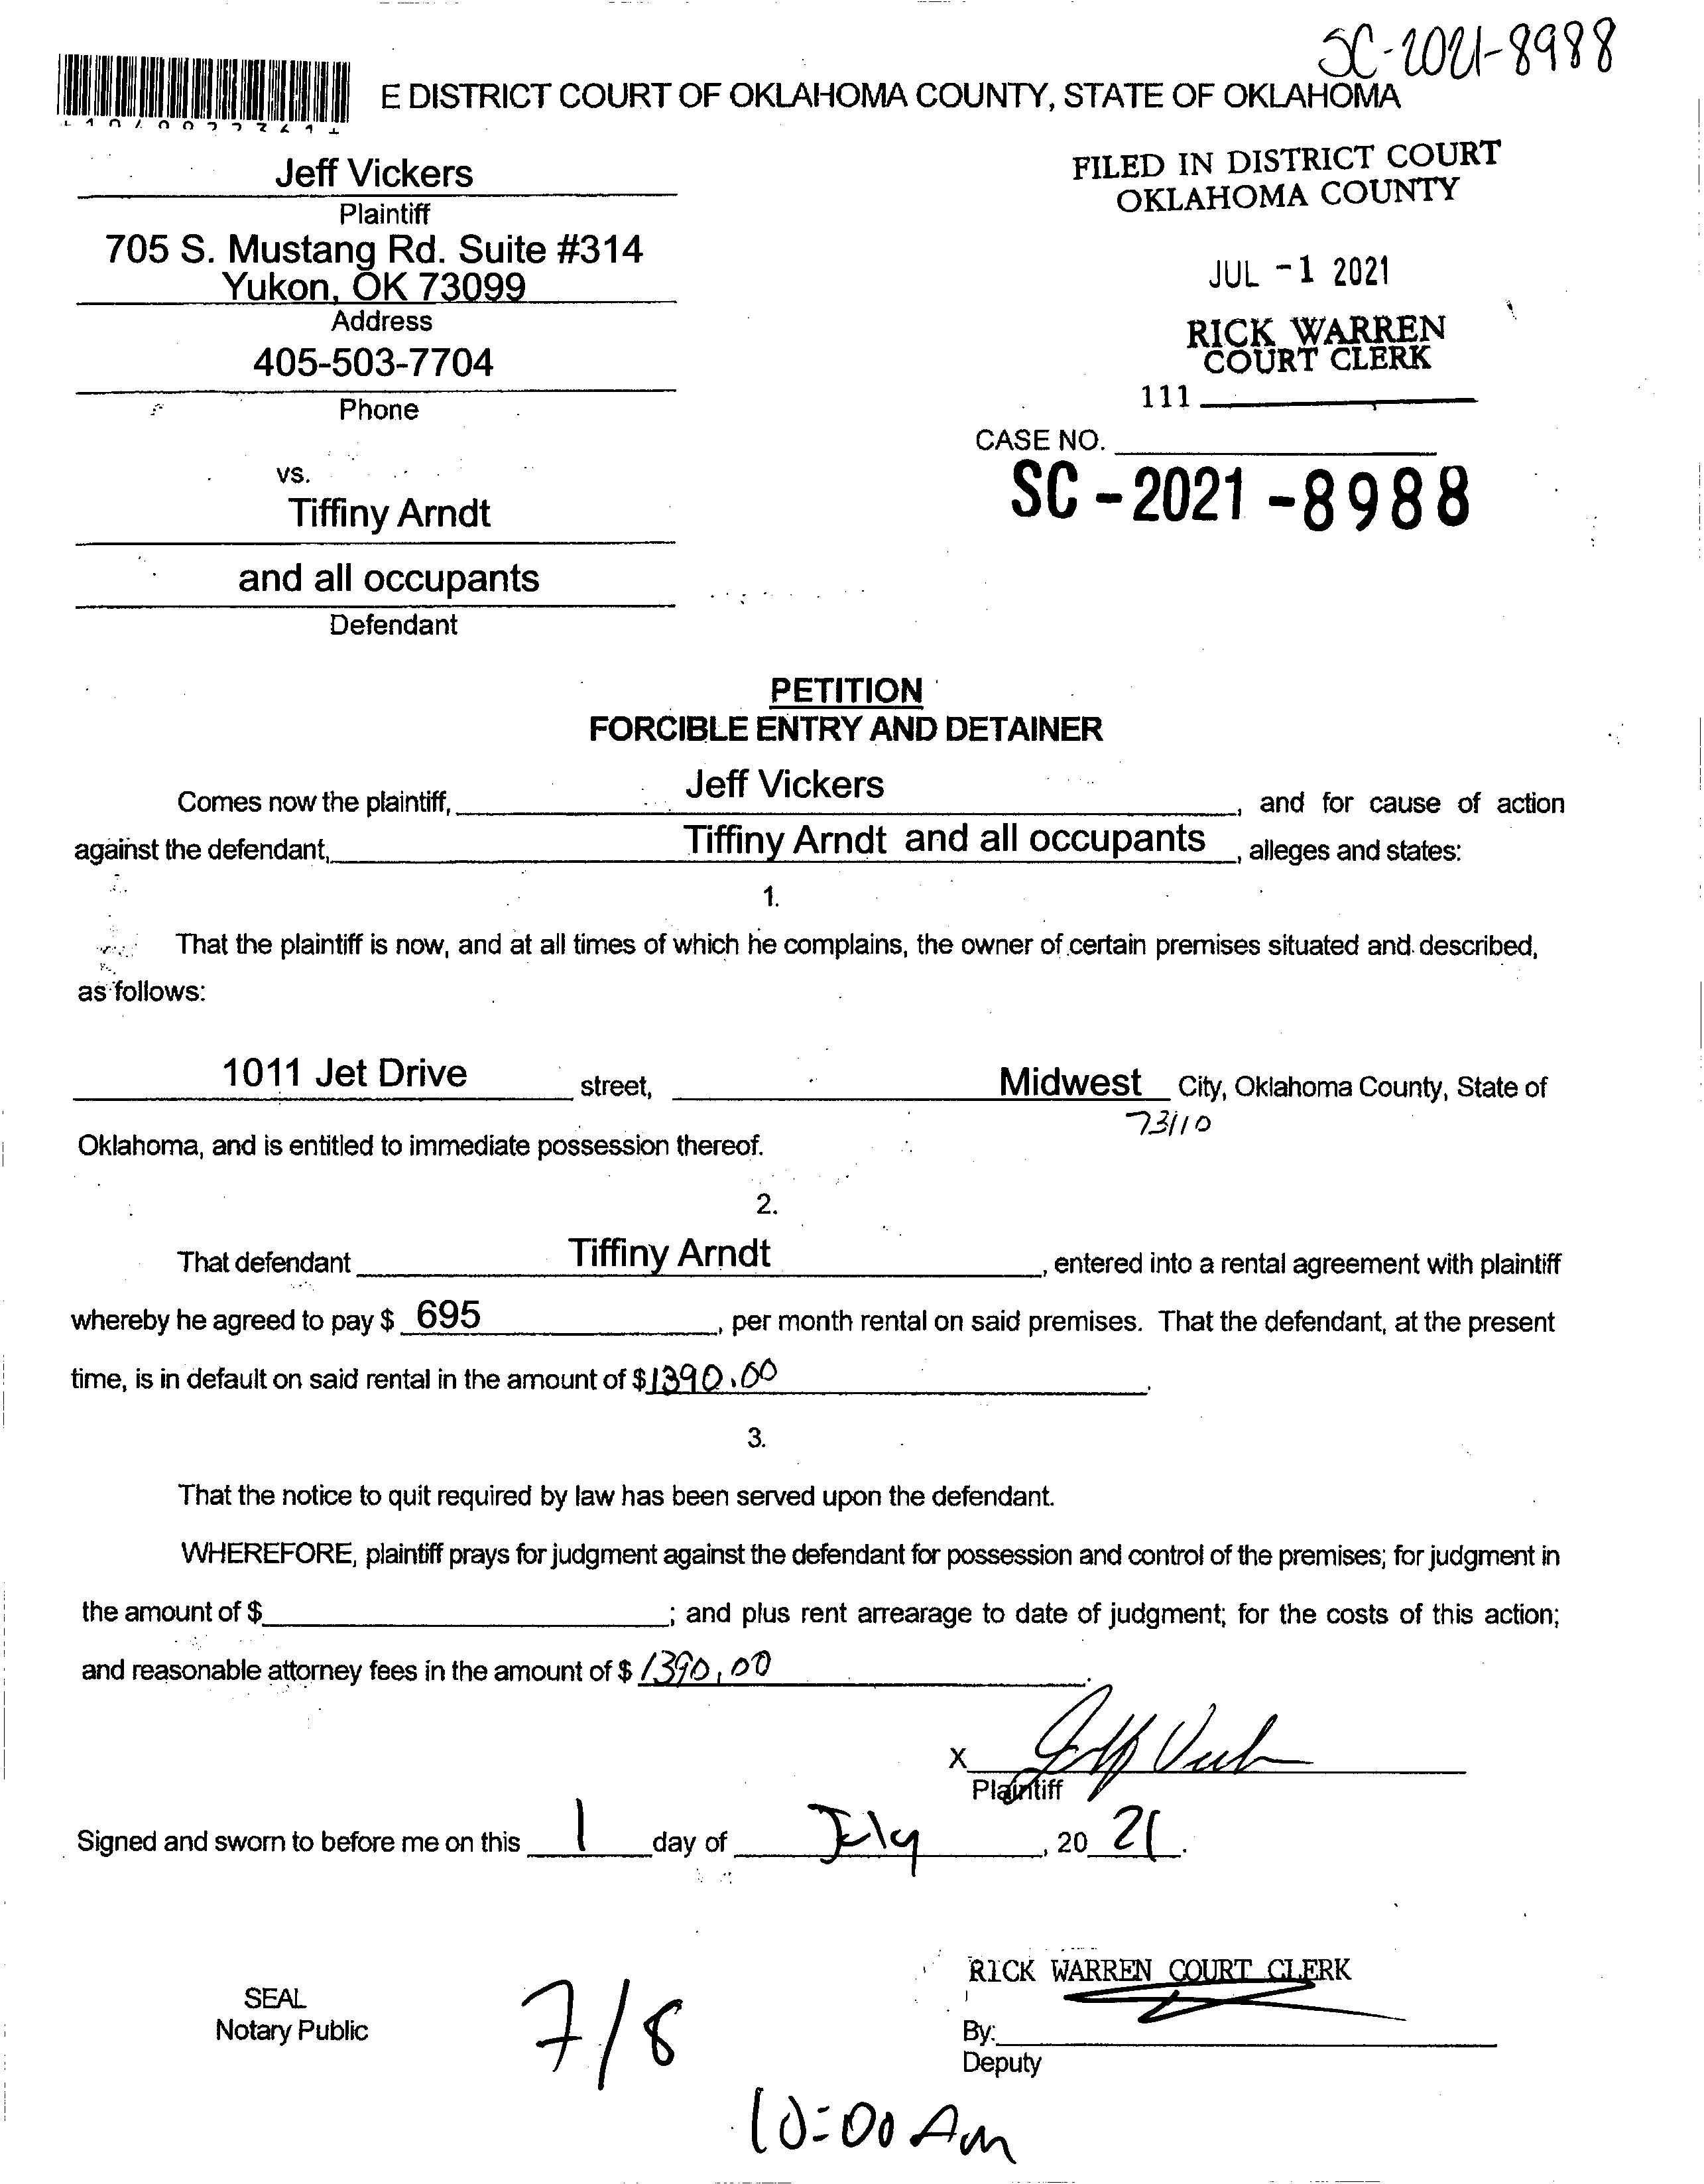 SC-2021-8988
E DISTRICT COURT OF OKLAHOMA COUNTY, STATE OF OKLAHOMA
Jeff Vickers
Plaintiff
705 S. Mustang Rd. Suite #314
Yukon, OK 73099
Address
405-503-7704
Phone
vs.
Tiffiny Arndt
and all occupants
Defendant
FILED IN DISTRICT COURT
OKLAHOMA COUNTY
JUL -1 2021
RICK WARREN
COURT CLERK
111
CASE NO.
SC-2021-8988
PETITION
FORCIBLE ENTRY AND DETAINER
Comes now the plaintiff, Jeff Vickers, and for cause of action
against the defendant, Tiffiny Arndt and all occupants, alleges and states:
1.
That the plaintiff is now, and at all times of which he complains, the owner of certain premises situated and described,
as follows:
1011 Jet Drive street, Midwest City, Oklahoma County, State of
73110
Oklahoma, and is entitled to immediate possession thereof.
2.
That defendant Tiffiny Arndt, entered into a rental agreement with plaintiff
whereby he agreed to pay $ 695, per month rental on said premises. That the defendant, at the present
time, is in default on said rental in the amount of $1390.00.
3.
That the notice to quit required by law has been served upon the defendant.
WHEREFORE, plaintiff prays for judgment against the defendant for possession and control of the premises; for judgment in
the amount of $; and plus rent arrearage to date of judgment; for the costs of this action;
and reasonable attorney fees in the amount of $ 1390.00.
X Jeff Vickers
Plaintiff
Signed and sworn to before me on this 1 day of July, 20 21.
RICK WARREN COURT CLERK
SEAL
Notary Public
7/8
By:
Deputy
10:00 Am